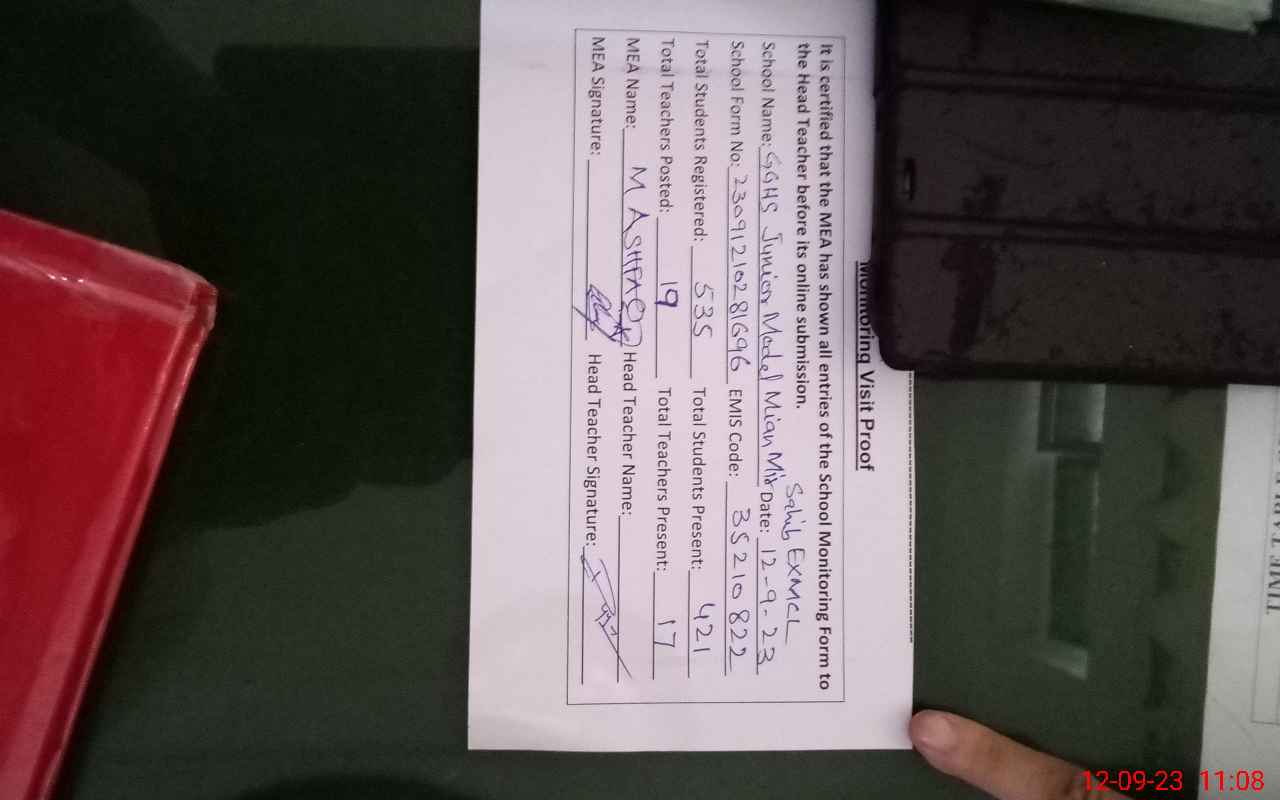 Monitoring Visit Proof
It is certified that the MEA has shown all entries of the School Monitoring Form to
the Head Teacher before its online submission.
Sahib EXMCL
School Name: GGHS Junior Model Mian Mir Date: 12-9-23
School Form No: 23091210281696 EMIS Code: 35210822
Total Students Registered: 535 Total Students Present: 421
Total Teachers Posted: 19 Total Teachers Present: 17
MEA Name: M ASHFAQ Head Teacher Name:
MEA Signature: Head Teacher Signature:
12-09-23 11:08